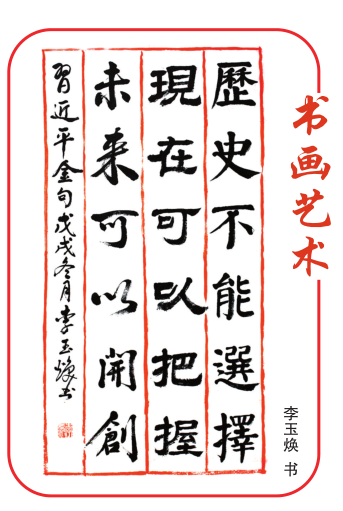 歷史不能選擇
現在可以把握
未来可以開創
習近平金句戊戌冬月李玉焕书
书画艺术
李玉焕 书